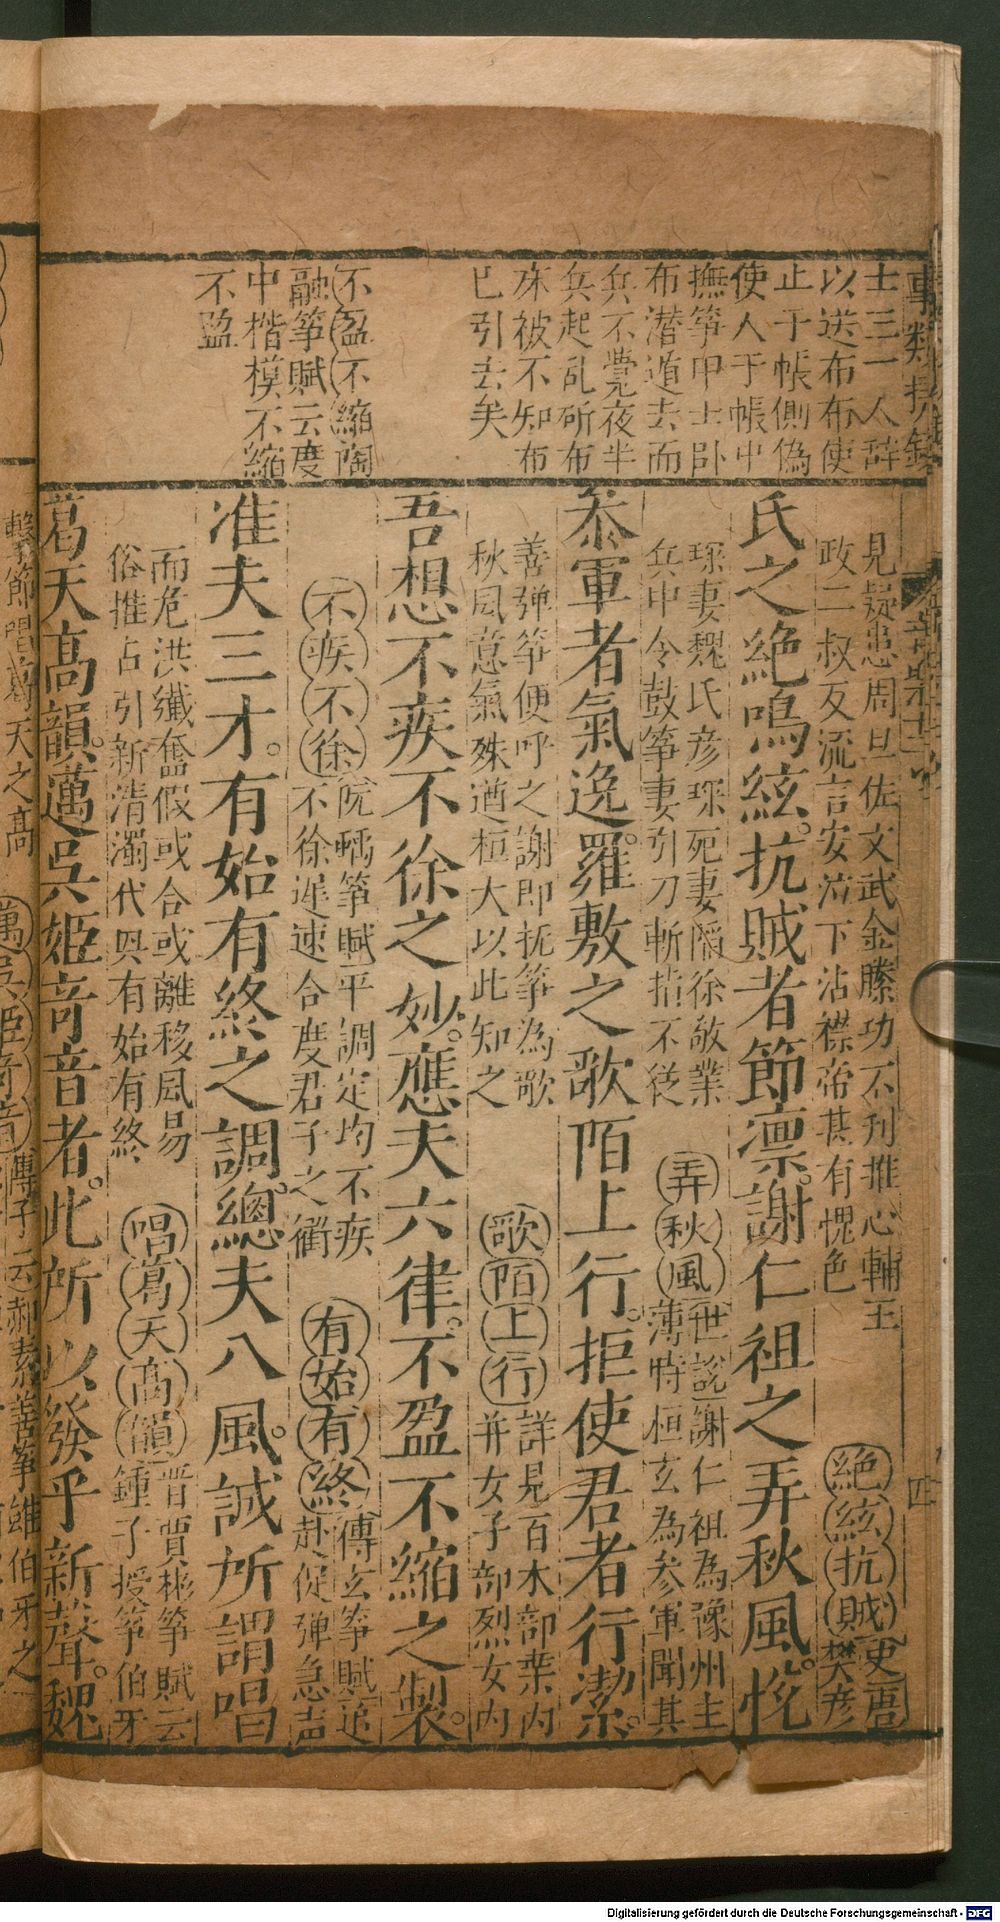 士三一人辞
以送布布使
止于帳側偽
使人于帳中
撫筝甲士卧
布潜遁去而
兵不覺夜半
兵起乱斫布
床被不知布
已引去矣
不盈不縮陶
融筝賦云度
中楷模不縮
不盈
四
見疑患周旦佐文武金縢功不刊推心輔王
政二叔反流言安泣下沾襟帝甚有愧色
絶絃抗賊史唐
樊彦
氏之絶鳴絃。抗賊者節凛。謝仁祖之弄秋風。悦
琛妻魏氏彦琛死妻陷徐敬業
兵中令鼓筝妻引刀斬指不従
弄秋風世説謝仁祖為豫州主
薄時桓玄為参軍聞其
叅軍者氣逸。羅敷之歌陌上行。拒使君者行潔。
善弹筝便呼之謝即抚筝為歌
秋風意氣殊遒桓大以此知之
歌陌上行詳見百木部葉内
并女子部烈女内
吾想不疾不徐之妙。應夫六律。不盈不縮之製。
不疾不徐阮瑀筝賦平調定均不疾
不徐遲速合度君子之衢
有始有終傅玄筝賦追
赴促弹急声
准夫三才。有始有終之調。總夫八風。誠所謂唱
而危洪纎奮假或合或離移風易
俗推占引新清濁代興有始有終
唱葛天高韻晋賈彬筝賦云
鍾子授筝伯牙
葛天高韻。邁吳姬竒音者。此所以發乎新聲。魏
擊節唱葛天之高
邁吳姬竒音傅子云郝素善筝雖伯牙之
Digitalisierung gefördert durch die Deutsche Forschungsgemeinschaft - DFG